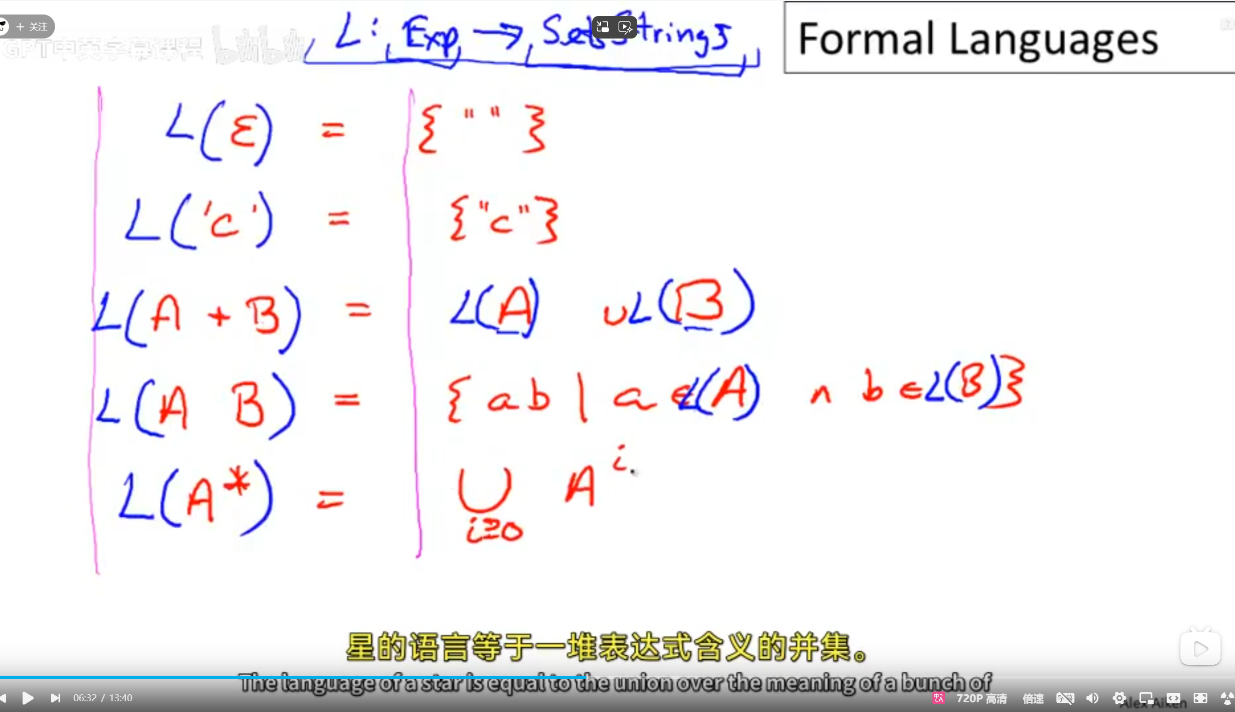 + 关注
GPT中英字幕课程 bilibili
L: Exp → Set Strings
Formal Languages
L(ε) = { " " }
L('c') = {"c"}
L(A + B) = L(A) ∪ L(B)
L(A B) = { ab | a ∈ L(A) ∧ b ∈ L(B)}
L(A*) = ⋃ i≥0 A^i
星的语言等于一堆表达式含义的并集。
The language of a star is equal to the union over the meaning of a bunch of
06:32 / 13:40
720P 高清
倍速
Alex Aiken